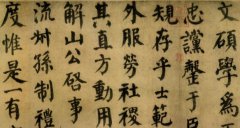 文碩學為
忠讜罄于臣
規存乎士範
外服勞社稷
其直方動用
解山公啓事
流叔孫制禮
度惟是一有